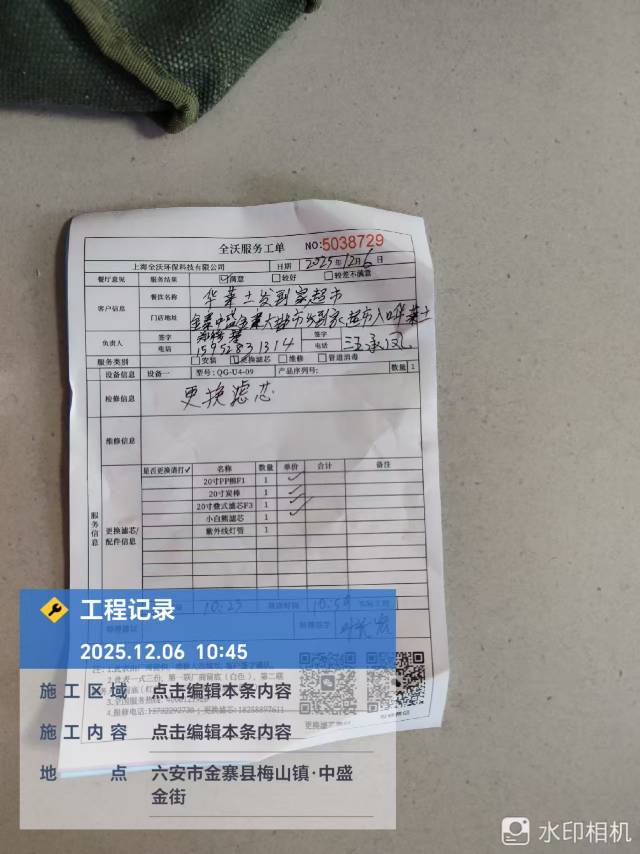 全沃服务工单 NO:5038729
上海全沃环保科技有限公司 日期 2025年12月6日
餐厅意见 服务结果 ☑满意 □较好 □较差不满意
客户信息 餐饮名称 华莱士发到家超市
门店地址 金寨中盛金寨大超市发到家超市入口华莱士
负责人 签字 签字
电话 15952831314 电话
服务类别 □安装 ☑更换滤芯 □维修 □管道消毒
设备信息 设备一 型号:QG-U4-09 产品序列号: 数量 1
检修信息 更换滤芯
维修信息
服务信息
更换滤芯/配件信息
是否更换请打✓ 名称 数量 单价 合计 备注
20寸PP棉F1 1 ✓
20寸炭棒 1 ✓
20寸叠式滤芯F3 1 ✓
小白熊滤芯 1
紫外线灯管 1
10:23
更换滤芯
工程记录
2025.12.06 10:45
施工区域 点击编辑本条内容
施工内容 点击编辑本条内容
地点 六安市金寨县梅山镇·中盛
金街
水印相机